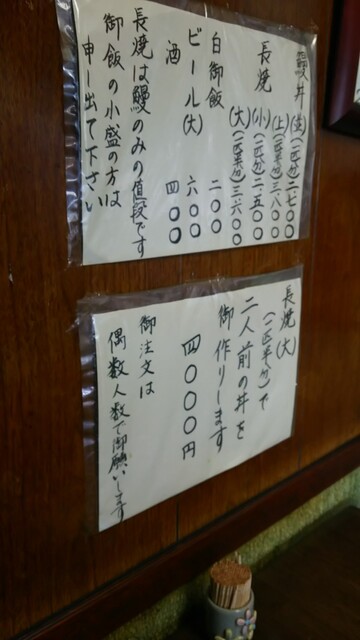 鰻丼(並)(一匹分)二.七〇〇
(上)(一匹半分)三.八〇〇
長焼(小)(一匹分)二.五〇〇
(大)(一匹半分)三.六〇〇
白御飯 二〇〇
ビール(大) 六〇〇
酒 四〇〇
長焼は鰻のみの値段です
御飯の小盛の方は
申し出て下さい
長焼(大)
(一匹半分)で
二人前の丼を
御作りします
四〇〇〇円
御注文は
偶数人数で御願いします